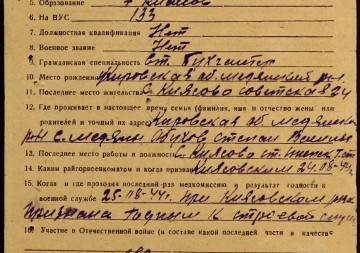 5. Образование 7 классов
6. На ВУС 133
7. Должностная квалификация Нет
8. Военное звание Нет
9. Гражданская специальность Ст. Бухгалтер
10. Место рождения Кировская об. Медянский р-н.
11. Последнее место жительства С. Киясово советская 24
12. Где проживает в настоящее время семья (фамилия, имя и отчество жены или
родителей и точный их адрес) Кировская об. Медянск
р-н с. Медяны Обухов Степан
13. Последнее место работы и должность С. Киясова ст.
14. Каким райгорвоенкоматом и когда призван Киясовским 24.08-44г.
15. Когда и где проходил последний раз медкомиссию и результат годности к
военной службе 25-08-44г. при Киясовском
Признана Годным к строевой
16. Участие в Отечественной войне (в составе какой последней части и в качестве